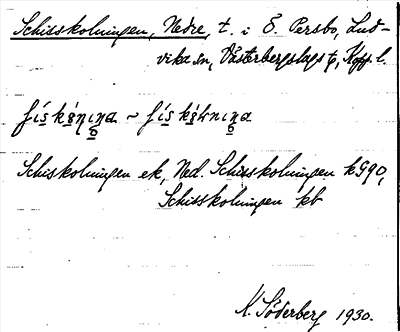 Schisskolningen, Nedre, t. i Ö. Persbo, Lud-
vika sn, Västerbergslags f., Kopp. l.
Schiskolningen ek, Ned. Schisskolningen kG90,
Schisskolningen kb
K. Söderberg 1930.